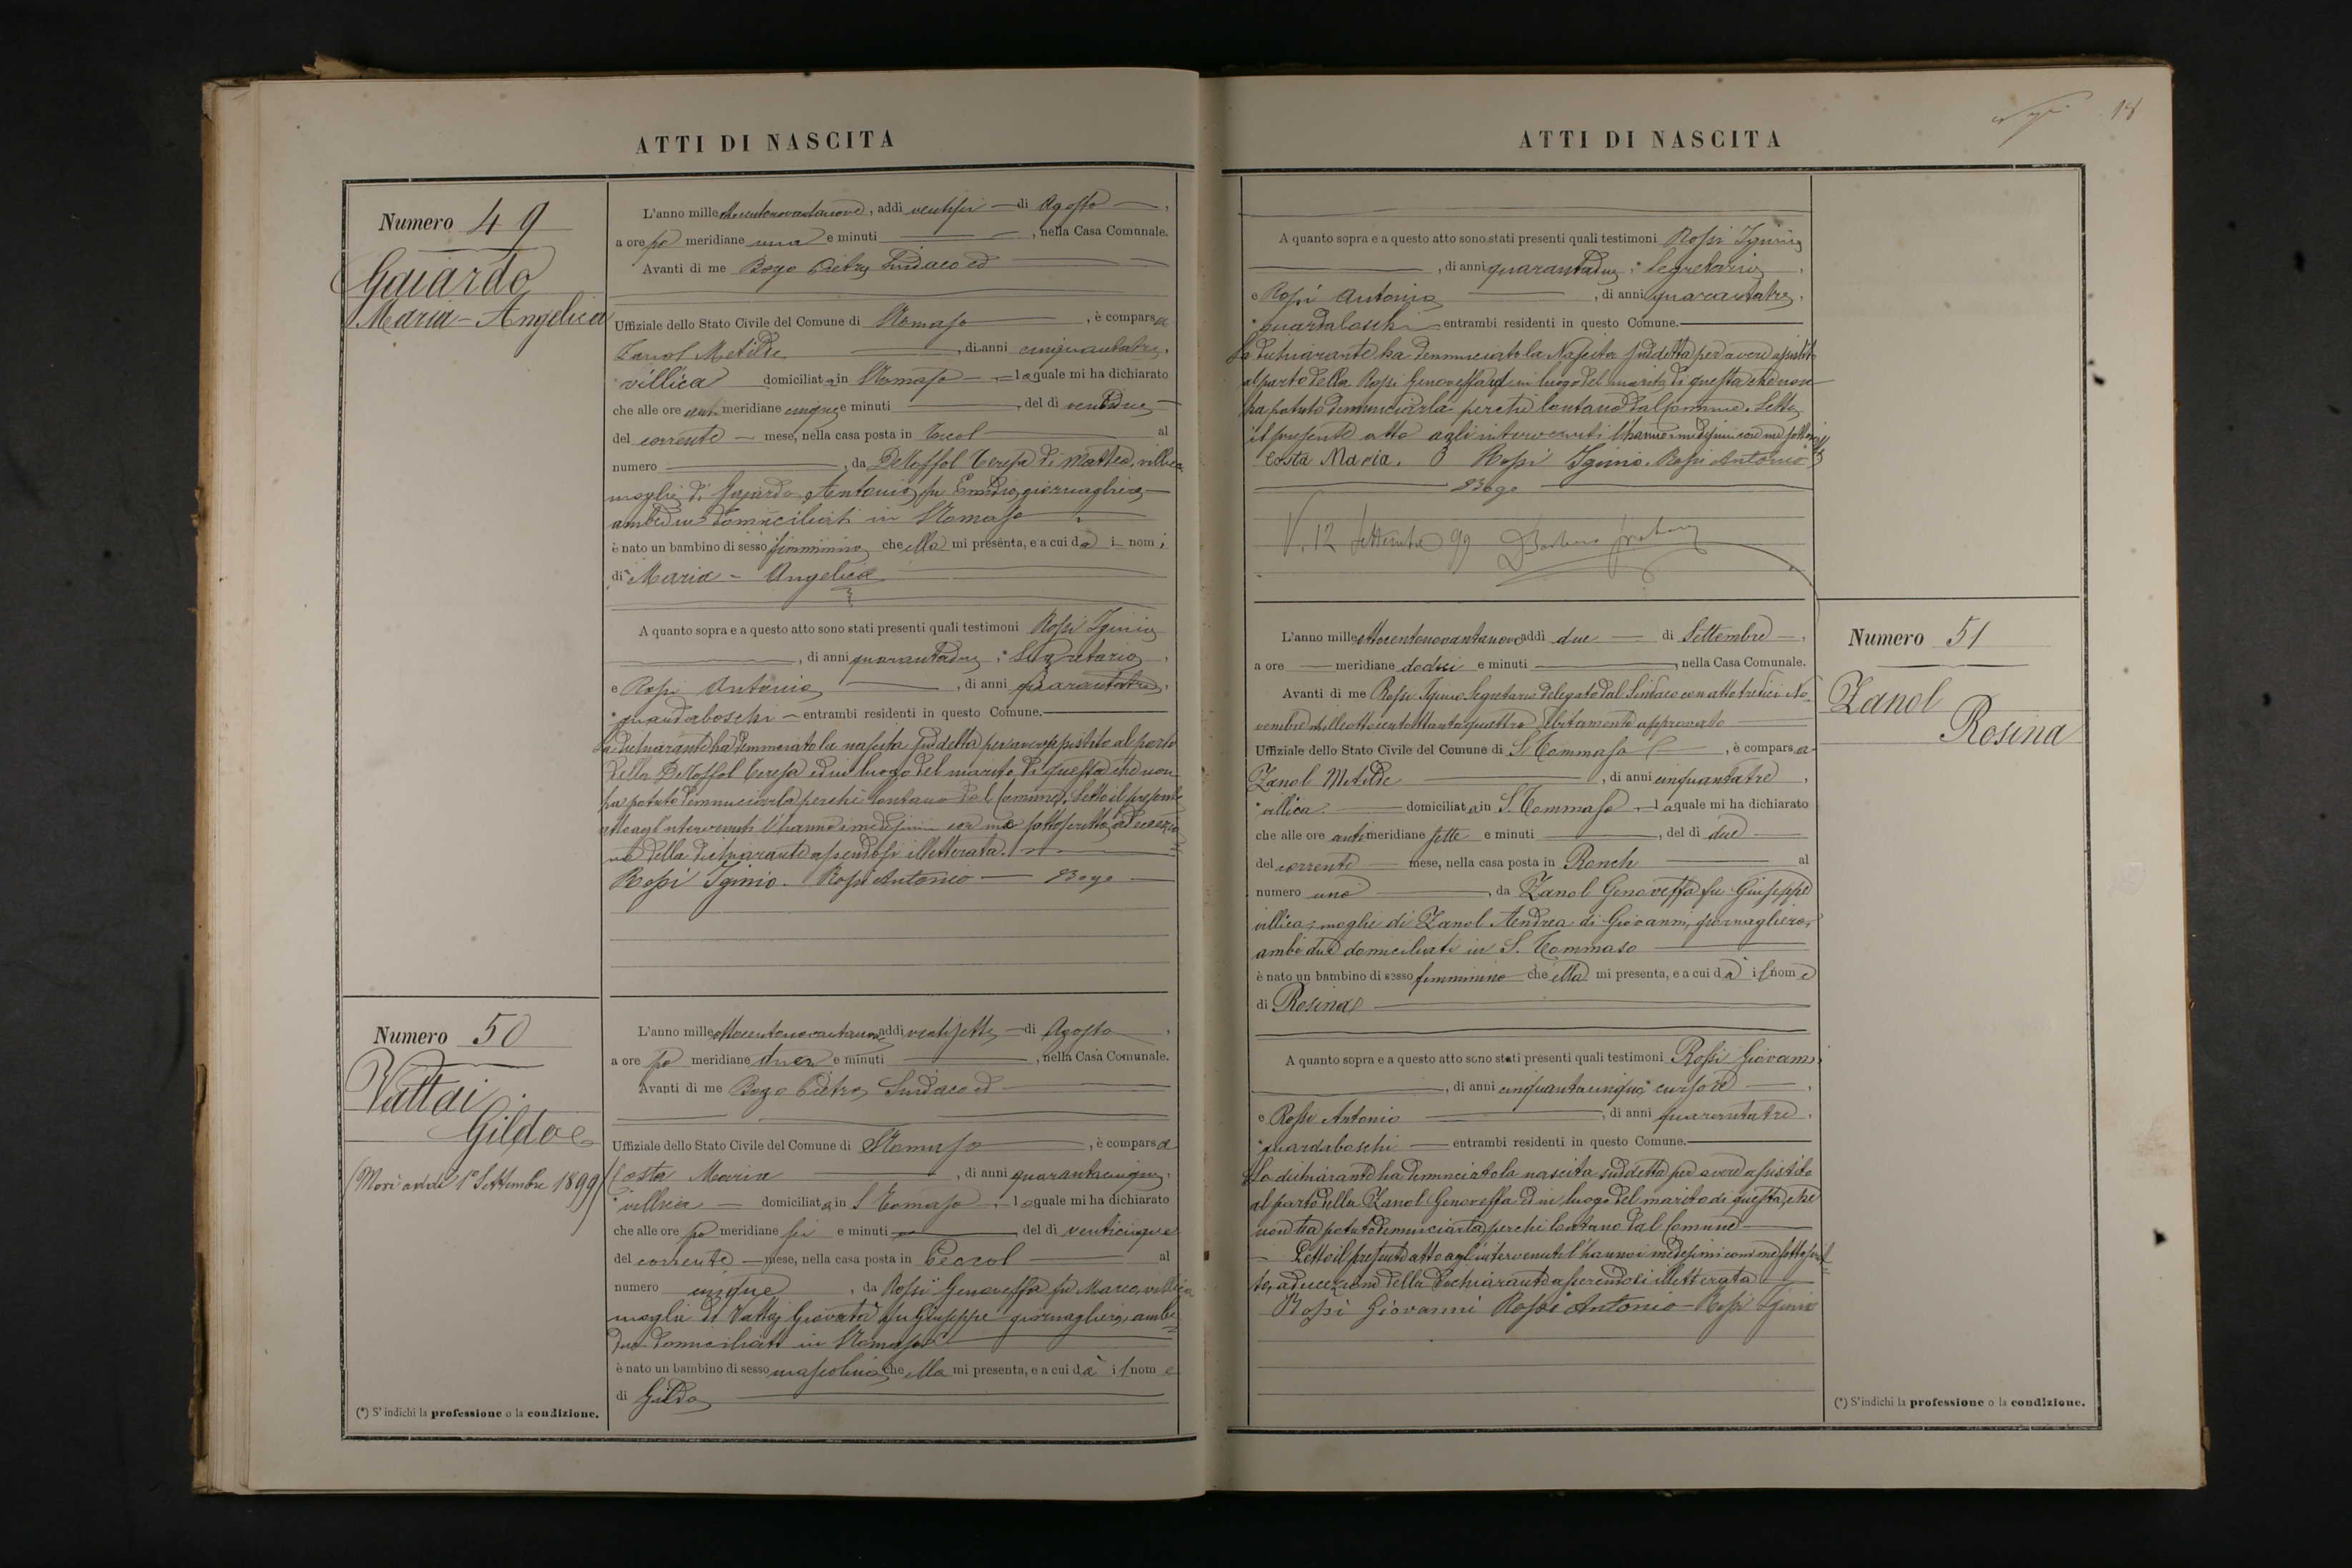 ATTI DI NASCITA
Numero 49
Gaiardo
Maria - Angelica
L'anno mille ottocentonovantanove, addì ventisei di Agosto,
a ore po meridiane una e minuti, nella Casa Comunale.
Avanti di me Bogo Pietro Sindaco ed
Uffiziale dello Stato Civile del Comune di S Tomaso, è comparsa
Zanol Metilde, di anni cinquantatre,
* villica domiciliata in S Tomaso, la quale mi ha dichiarato
che alle ore anti meridiane cinque e minuti, del dì ventidue
del corrente mese, nella casa posta in al
numero, da DeToffol Teresa di Matteo, villica
moglie di Gaiardo Antonio fu giornagliero
ambedue domiciliati in S Tomaso
è nato un bambino di sesso femminino che ella mi presenta, e a cui dà i nomi
di Maria - Angelica
A quanto sopra e a questo atto sono stati presenti quali testimoni Rossi Iginio
, di anni quarantadue, * Segretario,
e Rossi Antonio, di anni quarantatre,
* guardaboschi entrambi residenti in questo Comune.
La dichiarante ha denunciato la nascita suddetta per aver assistito al parto
della DeToffol Teresa ed in luogo del marito di questa che non
ha potuto denunciarla perchè lontano dal Comune. Letto il presente
atto agl'intervenuti l'hanno i medesimi con me sottoscritto, ad eccezio
ne della dichiarante essendosi illetterata.
Rossi Iginio. Rossi Antonio Bogo
Numero 50
Vattai
Gildo
(Morì addì 1° Settembre 1899)
L'anno mille ottocentonovantanove addì ventisette di Agosto,
a ore po meridiane due e minuti, nella Casa Comunale.
Avanti di me Bogo Pietro Sindaco ed
Uffiziale dello Stato Civile del Comune di S Tomaso, è comparsa
Costa Maria, di anni quarantacinque,
* villica domiciliata in S Tomaso, la quale mi ha dichiarato
che alle ore po meridiane sei e minuti, del dì venticinque
del corrente mese, nella casa posta in Peccol al
numero cinque, da Rossi Genoveffa fu Marco, villica
moglie di Vattai fu Giuseppe giornagliero, ambe
due domiciliati in S Tomaso
è nato un bambino di sesso mascolino che ella mi presenta, e a cui dà il nome
di Gildo
(*) S'indichi la professione o la condizione.
18
ATTI DI NASCITA
A quanto sopra e a questo atto sono stati presenti quali testimoni Rossi Iginio
, di anni quarantadue, * Segretario,
e Rossi Antonio, di anni quarantatre,
* guardaboschi entrambi residenti in questo Comune.
La dichiarante ha denunciato la Nascita suddetta per avere assistito
al parto della Rossi Genoveffa ed in luogo del marito di questa che non
ha potuto denunciarla perchè lontano dal Comune. Letto
il presente atto agli intervenuti l'hanno i medesimi con me sottoscritto
Costa Maria. Rossi Iginio. Rossi Antonio
Bogo
V. 12 Settembre 99
Numero 51
Zanol
Rosina
L'anno mille ottocentonovantanove addì due di Settembre,
a ore meridiane dodici e minuti, nella Casa Comunale.
Avanti di me Rossi Iginio Segretario delegato dal Sindaco con atto tredici No
vembre milleottocentottantaquattro debitamente approvato
Uffiziale dello Stato Civile del Comune di S. Tommaso, è comparsa
Zanol Metilde, di anni cinquantatre,
* villica domiciliata in S. Tommaso, la quale mi ha dichiarato
che alle ore antimeridiane sette e minuti, del dì due
del corrente mese, nella casa posta in Ronch al
numero uno, da Zanol Genoveffa fu Giuseppe
villica, moglie di Zanol Andrea di Giovanni, giornagliero,
ambidue domiciliati in S. Tommaso
è nato un bambino di sesso femminino che ella mi presenta, e a cui dà il nome
di Rosina
A quanto sopra e a questo atto sono stati presenti quali testimoni Rossi Giovanni
, di anni cinquantacinque, * cursore,
e Rossi Antonio, di anni quarantatre,
* guardaboschi entrambi residenti in questo Comune.
La dichiarante ha denunciato la nascita suddetta per avere assistito
al parto della Zanol Genoveffa ed in luogo del marito di questa, che
non ha potuto denunciarla perchè lontano dal Comune
Letto il presente atto agl'intervenuti l'hanno i medesimi con me sottoscrit
to, ad eccezione della dichiarante asserendosi illetterata
Rossi Giovanni Rossi Antonio - Rossi Iginio
(*) S'indichi la professione o la condizione.